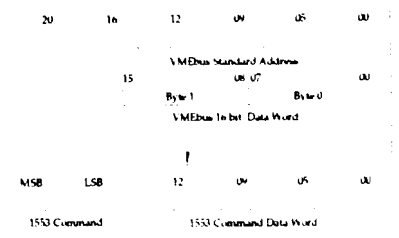 20 16 12 09 05 00
VMEbus Standard Address
15 08 07 00
Byte 1 Byte 0
VMEbus 16 bit Data Word
MSB LSB 12 09 05 00
1553 Command 1553 Command Data Word